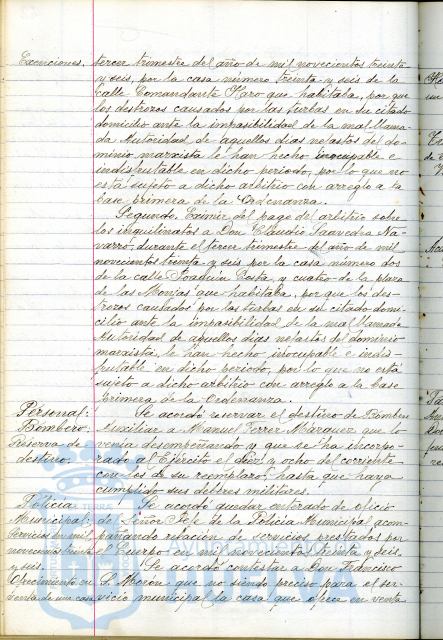 Exenciones. tercer trimestre del año de mil novecientos treinta
y seis, por la casa número treinta y seis de la
calle Comandante Haro que habitaba, por que
los destrozos causados por las turbas en su citado
domicilio ante la impasibilidad de la mal llama-
da Autoridad de aquellos días nefastos del do-
minio marxista le han hecho inocupable e
indisfrutable en dicho periodo, por lo que no
está sujeto a dicho arbitrio con arreglo a la
base primera de la Ordenanza.
Segundo. Eximir del pago del arbitrio sobre
los inquilinatos a Don Claudio Saavedra Na-
varro, durante el tercer trimestre del año de mil
novecientos treinta y seis por la casa número dos
de la calle Joaquín Costa, y cuatro de la plaza
de las Monjas que habitaba, por que los des-
trozos causados por las turbas en su citado domi-
cilio ante la impasibilidad de la mal llamada
Autoridad de aquellos días nefastos del dominio
marxista, le han hecho inocupable e indis-
frutable en dicho periodo, por lo que no está
sujeto a dicho arbitrio con arreglo a la base
primera de la Ordenanza.
Personal: Se acordó reservar el destino de Bombero
Bombero: Auxiliar a Manuel Ferrer Márquez que lo
Reserva de venía desempeñando y que se ha incorpo-
destino. rado al Ejército el diez y ocho del corriente
con los de su reemplazo, hasta que haya
cumplido sus deberes militares.
Policía Se acordó quedar enterado de oficio
Municipal: del Señor Jefe de la Policía Municipal acom-
Servicios en mil pañando relación de servicios prestados por
novecientos treinta el Cuerpo en mil novecientos treinta y seis.
y seis. Se acordó contestar a Don Francisco
Ofrecimiento en S. Morón que no siendo preciso para el ser-
venta de una casa vicio municipal la casa que ofrece en venta